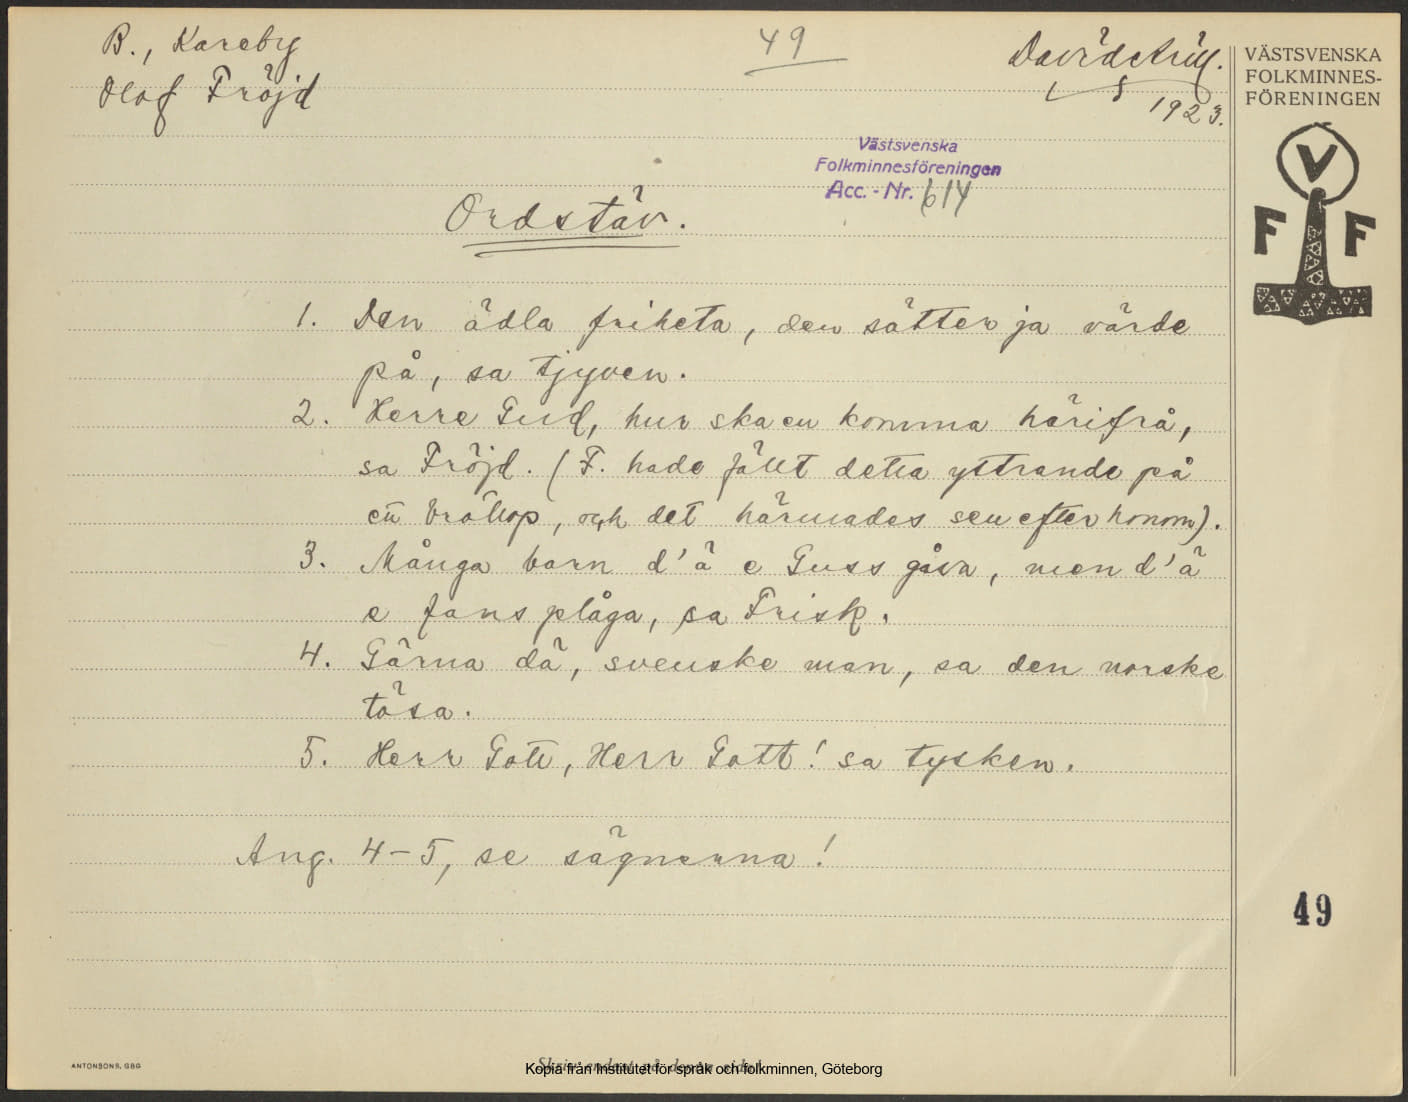 B., Kareby
Olof Fröjd
49
David Arill.
1923.
VÄSTSVENSKA
FOLKMINNES-
FÖRENINGEN
V
F F
Västsvenska
Folkminnesföreningen
Acc. - Nr. 614
Ordstäv.
1. Den ädla friheta, den sätter ja värde
på, sa tjyven.
2. Herre Gud, hur ska en komma härifrå,
sa Fröjd. (F. hade fällt detta yttrande på
en bråhop, och det härmades sen efter honom).
3. Många barn d'ä e Guss gåva, men d'ä
e fans plåga, sa Frisk.
4. Gärna dä, svenske man, sa den norske
tösa.
5. Herr Gott, Herr Gott! sa tysken.
Ang. 4-5, se sägnerna!
49
ANTONSONS, GBG
Skriv endast på denna sida!
Kopia från Institutet för språk och folkminnen, Göteborg